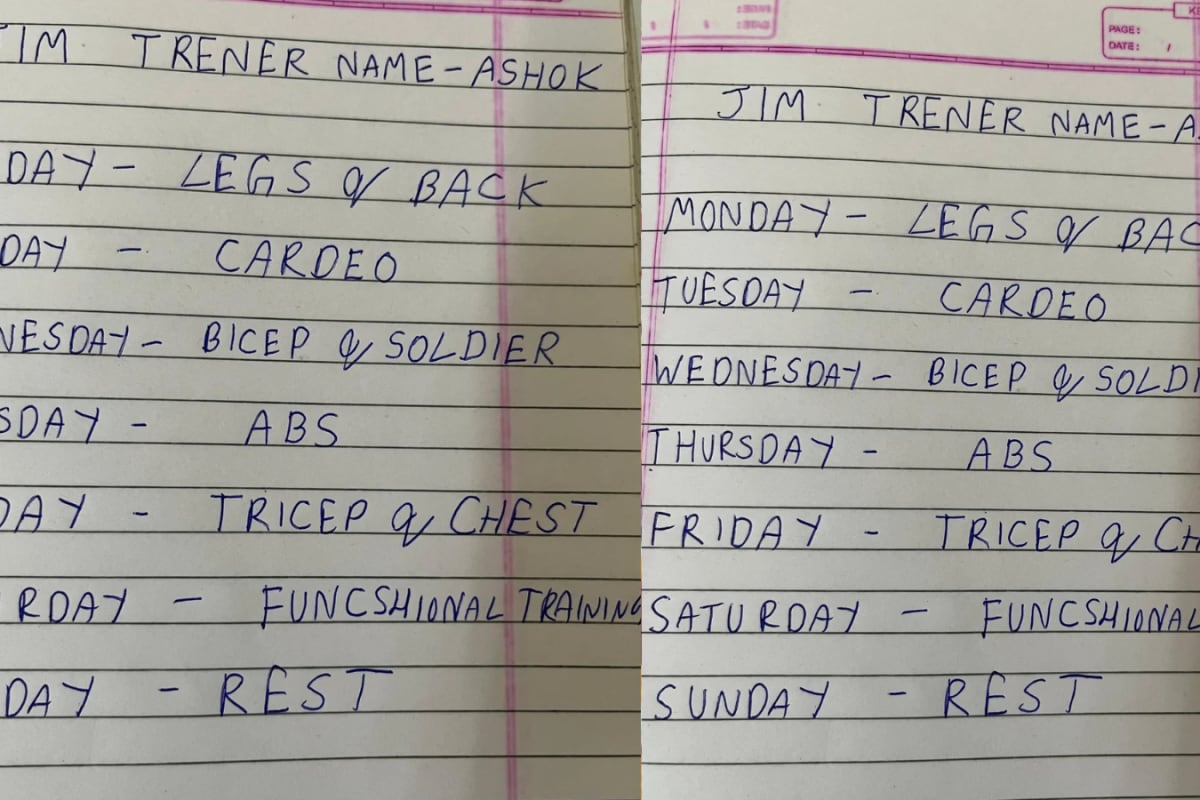 JIM TRENER NAME-ASHOK
DAY - LEGS & BACK
DAY - CARDEO
NESDAY - BICEP & SOLDIER
SDAY - ABS
DAY - TRICEP & CHEST
RDAY - FUNCSHIONAL TRAINING
DAY - REST
PAGE:
DATE: /
JIM TRENER NAME-A
MONDAY - LEGS & BAC
TUESDAY - CARDEO
WEDNESDAY - BICEP & SOLDI
THURSDAY - ABS
FRIDAY - TRICEP & CH
SATURDAY - FUNCSHIONAL
SUNDAY - REST